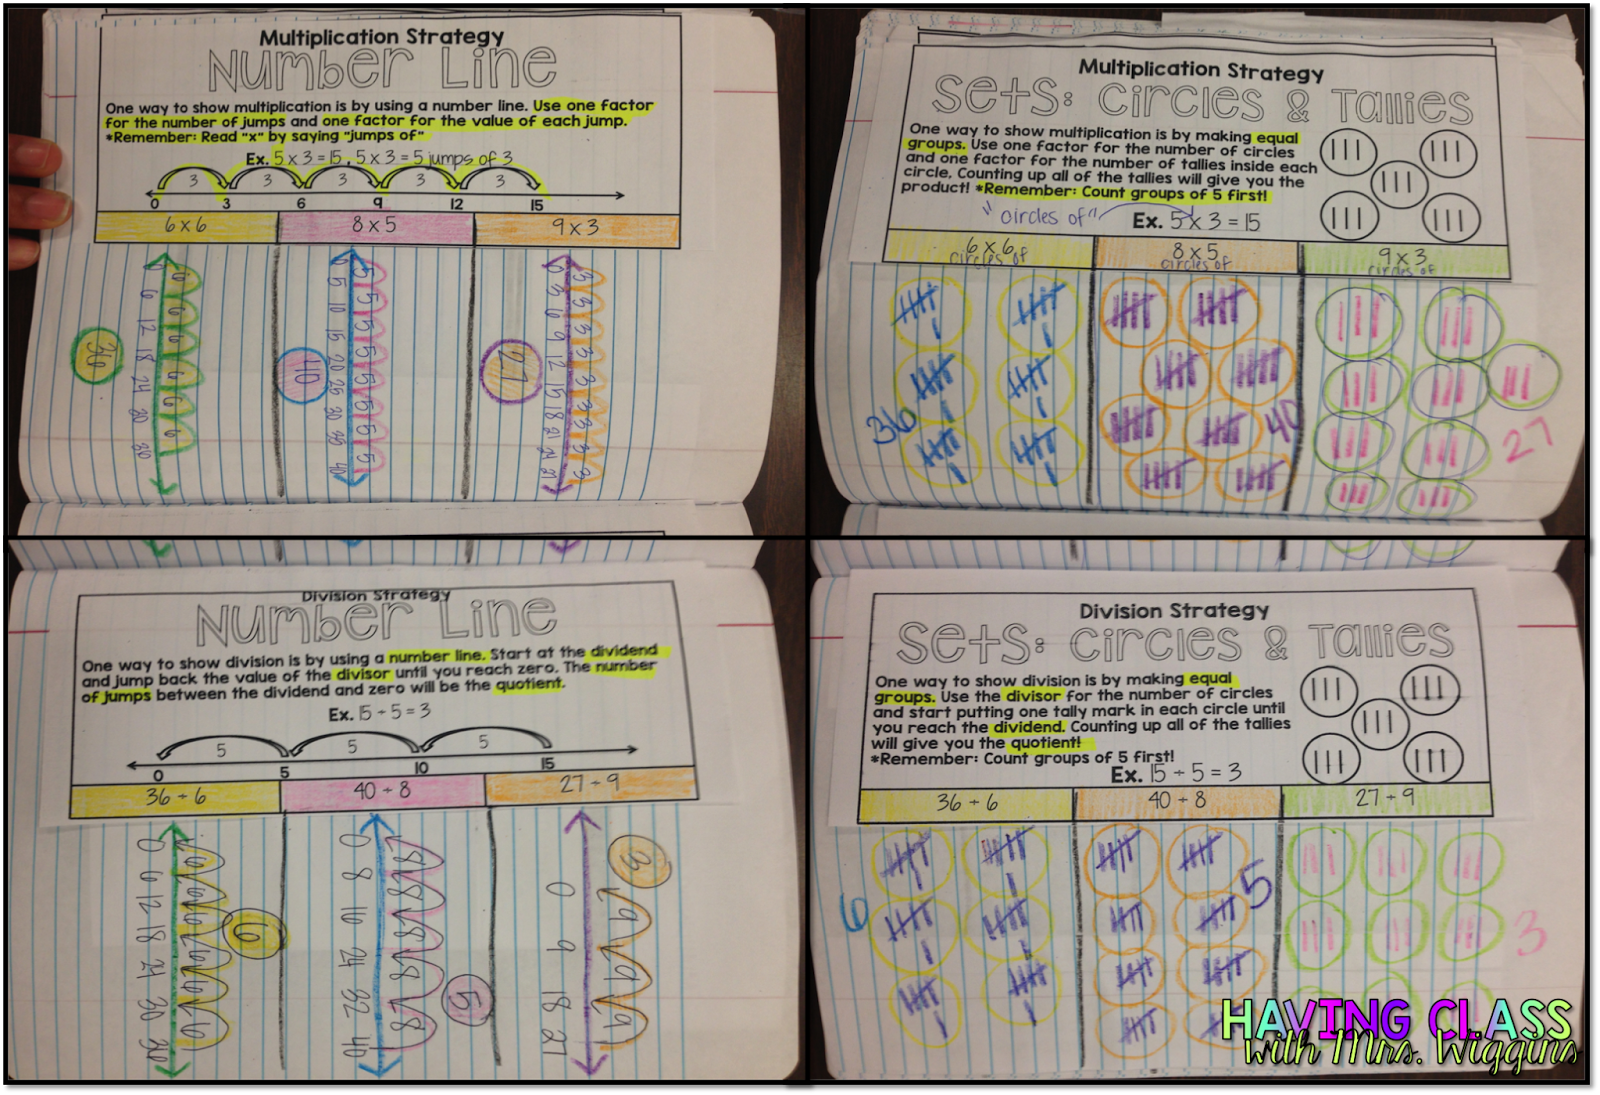 Multiplication Strategy
Number Line
One way to show multiplication is by using a number line. Use one factor
for the number of jumps and one factor for the value of each jump.
*Remember: Read "x" by saying "jumps of"
Ex. 5 x 3 = 15, 5 x 3 = 5 jumps of 3
3 3 3 3 3
0 3 6 9 12 15
6 x 6 8 x 5 9 x 3
0 6 12 18 24 30
6 6 6 6 6 6
36
0 5 10 15 20 25 30 35 40
5 5 5 5 5 5 5 5
40
0 3 6 9 12 15 18 21 24 27
3 3 3 3 3 3 3 3 3
27
Multiplication Strategy
Sets: Circles & Tallies
One way to show multiplication is by making equal
groups. Use one factor for the number of circles
and one factor for the number of tallies inside each
circle. Counting up all of the tallies will give you the
product! *Remember: Count groups of 5 first!
"circles of" Ex. 5 x 3 = 15
6 x 6 8 x 5 9 x 3
circles of circles of circles of
36 40 27
Division Strategy
Number Line
One way to show division is by using a number line. Start at the dividend
and jump back the value of the divisor until you reach zero. The number
of jumps between the dividend and zero will be the quotient.
Ex. 15 ÷ 5 = 3
5 5 5
0 5 10 15
36 ÷ 6 40 ÷ 8 27 ÷ 9
0 6 12 18 24 30 36
6 6 6 6 6 6
6
0 8 16 24 32 40
8 8 8 8 8
5
0 9 18 27
9 9 9
3
Division Strategy
Sets: Circles & Tallies
One way to show division is by making equal
groups. Use the divisor for the number of circles
and start putting one tally mark in each circle until
you reach the dividend. Counting up all of the tallies
will give you the quotient!
*Remember: Count groups of 5 first!
Ex. 15 ÷ 5 = 3
36 ÷ 6 40 ÷ 8 27 ÷ 9
6 5 3
HAVING CLASS
with Mrs. Wiggins